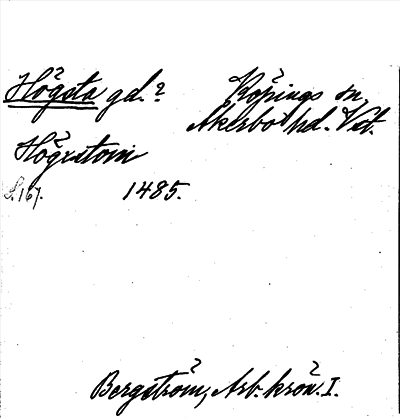 Högsta gd.? Köpings sn,
Åkerbo hd. Vst.
Högxstom
S. 167. 1485.
Bergström, Arb. krön. I.